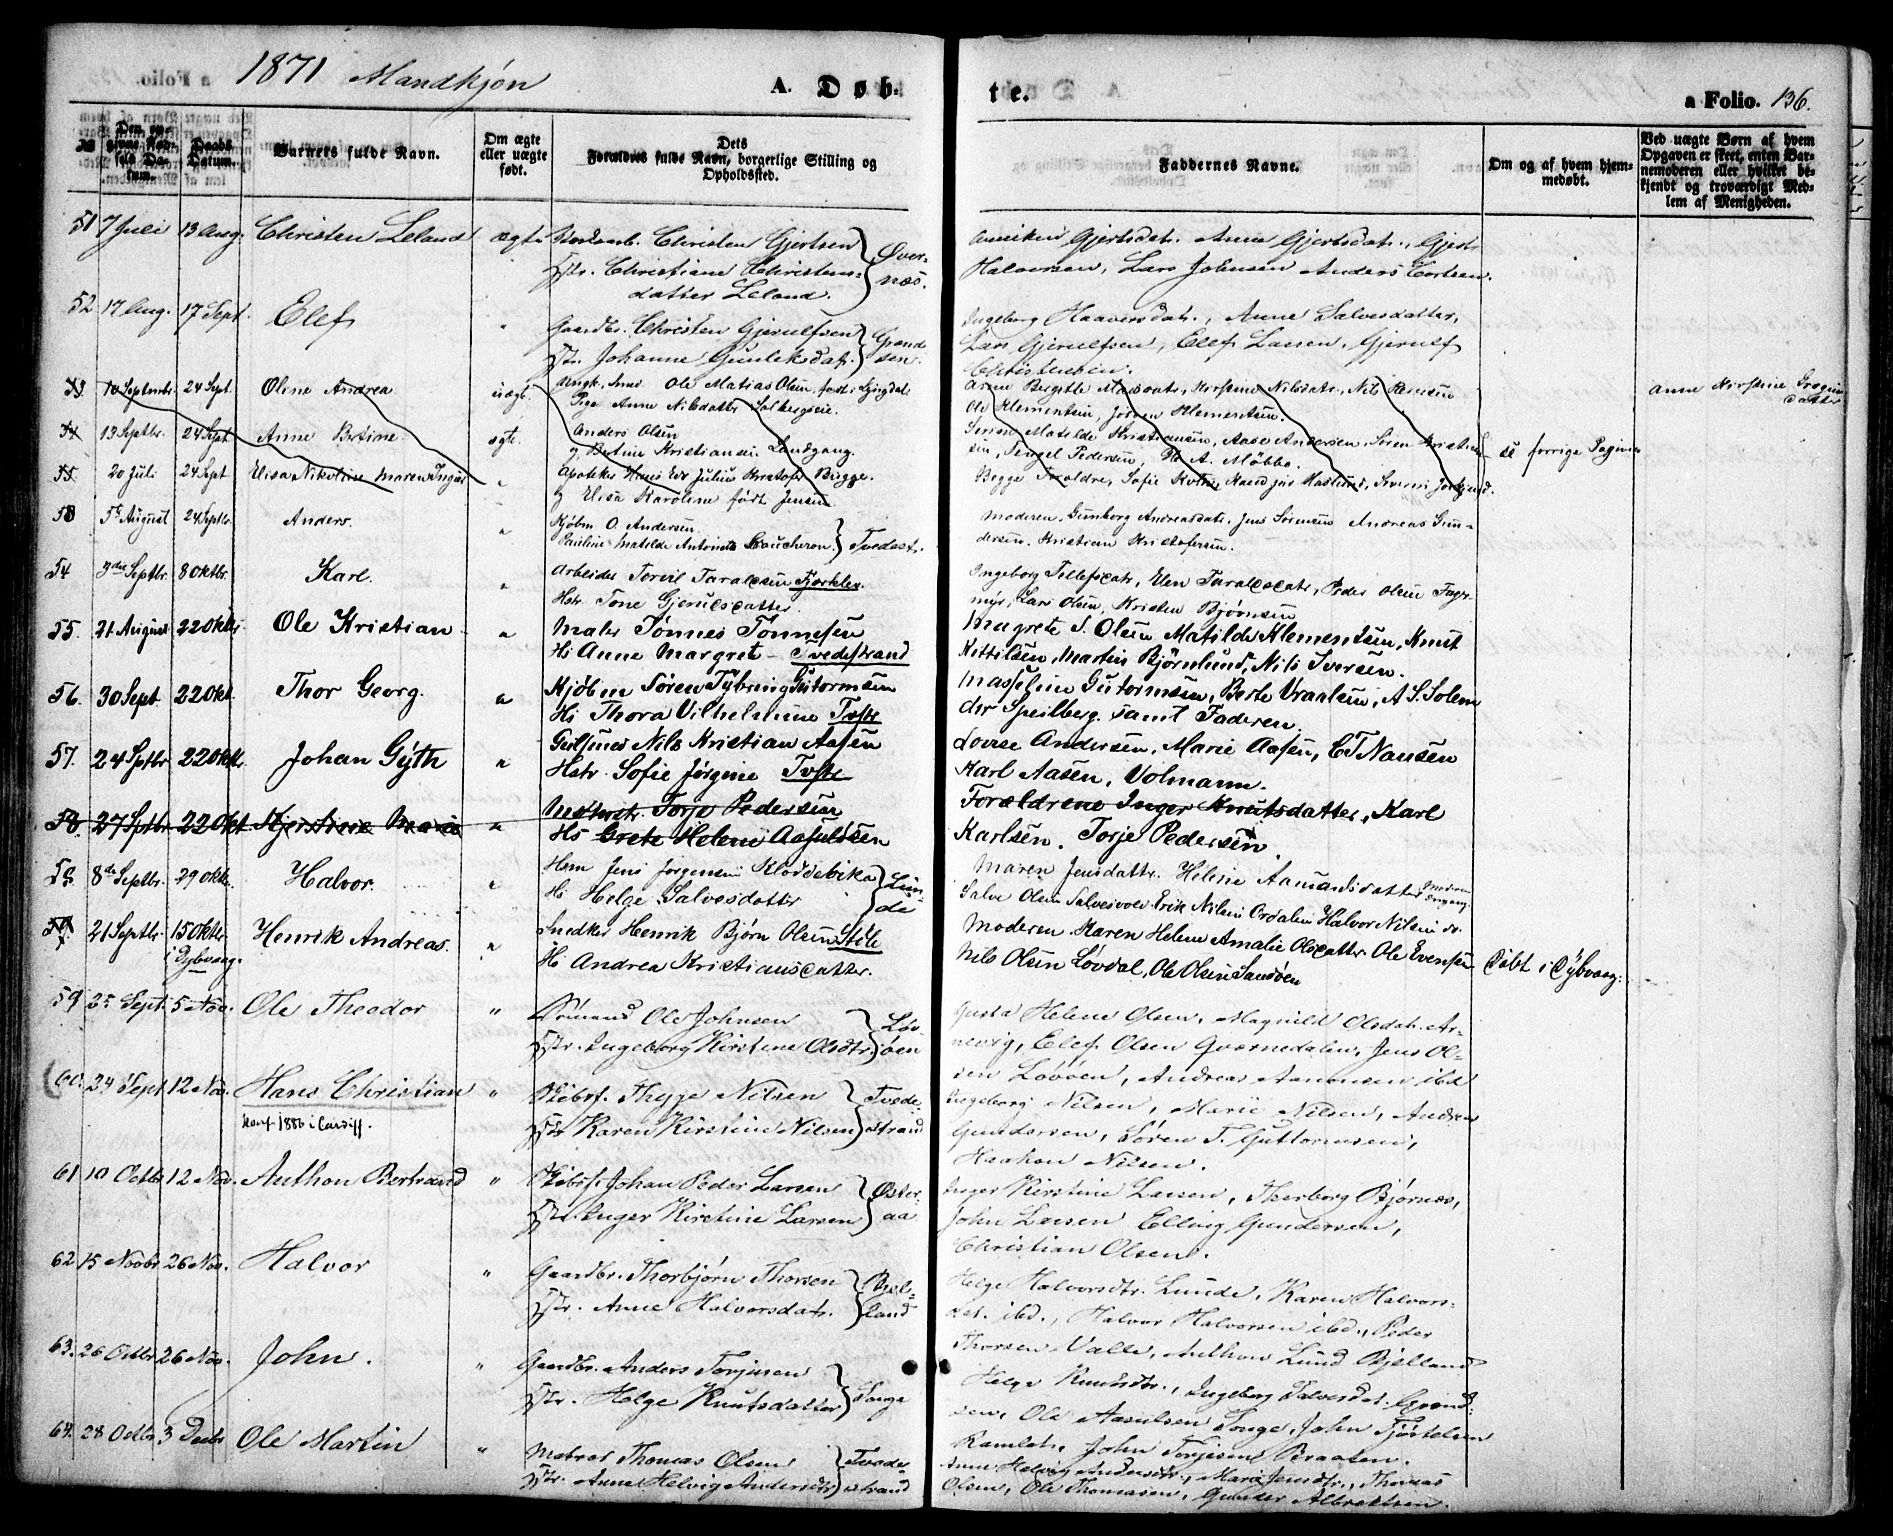 1871 Mandkjøn
A. Døb-
te.
a Folio. 136.
Den opgivne Fødsels Datum.
Daabs Datum.
Barnets fulde Navn.
Om ægte eller uægte født.
Dets
Forældres fulde Navn, borgerlige Stilling og
Opholdssted.
Faddernes Navne.
Om og af hvem hjemmedøbt.
Ved uægte Børn af hvem
Opgaven er skeet, enten Bar-
nemoderen eller hvilket be-
kjendt og troværdigt Med-
lem af Menigheden.
51 7 Juli 13 Aug. Christen Leland ægte Christen Gjertsen
Hstr. Christiane Christens-
datter Leland. Øver-
næs.
Anniken Gjertsdatr. Anne Gjertsdatr., Gjert
Halvorsen, Lars Johnsen Anders Tortsen.
52 17 Aug. 17 Sept. Elef " Gaardbr. Christen Gjerulfsen
Hstr. Johanne Gunleksdatr. Grønd-
sen.
Ingeborg Haaversdatr., Anne Salvesdatter,
Lars Gjerulfsen, Elef Larsen, Gjerulf
Christensen.
53 10 Septembr. 24 Sept. Oline Andrea uægte Ungk. Smed Ole Matias Olsen, født i Gjingdal
Pige Anne Nilsdatter Solbergseie.
Anne Birgitte Kirstine Nilsdatr., Nils Pedersen
Ole Klementsen, Jørgen Klementsen.
Anne Kirstine
datter
54 13 Septbr. 24 Sept Anne Bertine ægte. Anders Olsen
og Bertine Kristiansen Landgang.
Matilde Kristiansen, Aase Andersen, Søren Kristian-
sen, Tengel Pedersen, A. Møbbo.
se forrige Pagina
55 20 Juli 24 Sept Elisa Nikoline Maren Inga " Apoteker Hans Julius Kristofer Bugge.
og Elisa Karoline født Jensen
Begge Forældre, Sofie
53 5te August 24 Septbr. Anders. " Kjøbm O. Andersen
Pauline Matilde Antonette Coucheron. Tvedestr.
Moderen. Gunborg Andreasdatr. Jens Sørensen Andreas Gun-
dersen. Kristian Kristofersen.
54 3die Septbr. 8 Oktbr. Karl. " Arbeider Torvil Taraldsen
Hstr. Tone Gjerulsdatter.
Ingeborg Tellefsdatr, Elen Taraldsdatr, Peder Olsen Fager-
myr, Lars Olsen, Kristen Bjørnsen
55. 21 August 22 Oktbr. Ole Kristian " Maler Tønnes Tønnesen
Hs Anne Margrete - Tvedestrand
Magrete S. Olsen Matilde Klementsen, Knut
Kittilsen, Martin Bjørnlund, Nils Iversen.
56. 30 Sept 22 Okt. Thor Georg. " Kjøbm Søren Tybring Gutormsen
Hs Thora Vilhelmine Tvstr
Masseline Gutormsen, Berte Vraalsen, A. S. Solem
dr Speilberg. samt Faderen.
57. 24 Septbr 22 Oktr. Johan Gyth " Nils Kristian Aasen
Hstr. Sofie Jørgine Tvstr
Lovise Andersen, Marie Aasen, E T Nansen
Karl Aasen, Volmann.
58 27 Septbr 22 Okt Kjerstine Marie " Torjo Pedersen
Hs Grete Helene Aasulvsen
Forældrene Inger Knutsdatter, Karl
Karlsen. Torje Pedersen.
8de Septbr. 29 Oktr. Halvor. " Jens Jørgensen Kloddebika
Hs Helge Salvesdatter Lun-
de
Maren Jensdatter. Helene Aamundsdatter
Salve Olsen Salvesvold Erik Nilsen Ordalen Halvor Nilsen do.
21 Septbr. 15 Oktbr.
i Dybvaag. Henrik Andreas. " Snedker Henrik Bjørn Olsen Stöle
Hs Andrea Kristiansdatter.
Moderen Karen Helene Amalie Olsdatter Ole Evensen
Nils Olsen Løvdal, Ole Olsen Sandøen
Døbt i Dybvaag.
59 25 Sept. 5 Nov. Ole Theodor " Sømand Ole Johnsen
Hstr. Ingeborg Kirstine Olsdtr. Løv-
øen
Gusta Helene Olsen, Magnild Olsdatr. Ar-
nevig, Elef Olsen Qværnedalen, Jens Ol-
sen Løvøen, Andreas Aanonsen ibd
60. 24 Sept. 12 Nov. Hans Christian " Skibsf. Thyge Nilsen
Hstr Karen Kirstine Nilsen Tvede-
strand
Konf. 1886 i Cardiff.
Ingeborg Nilsen, Marie Nilsen, Andreas
Gundersen, Søren T. Guttormsen,
Haakon Nilsen.
61 10 Octbr 12 Nov. Anthon Bertrand " Skibsf. Johan Peder Larsen
Hstr. Inger Kirstine Larsen Øster-
aa
Inger Kirstine Larsen, Therborg Bjørnes,
John Larsen Elling Gundersen,
Christian Olsen.
62 15 Novbr 26 Nov. Halvor " Gaardbr. Thorbjørn Thorsen
Hstr. Anne Halvorsdatr. Bjel-
land
Helge Halvorsdtr. Lunde, Karen Halvors-
dat. ibd., Halvor Halvorsen ibd., Peder
Thorsen Valle, Anthon Lund Bjelland
63. 26 Octbr 26 Nov. John. " Gaardbr. Anders Torjusen
Hstr. Helge Knutsdatter Songe
Helge Knutsdtr., Ingeborg Salvesdat. Grønd-
sen, Ole Aasulsen Songe, John
John Torjusen Braaten.
64. 28 Octbr 3 Decbr Ole Martin " Matros Thomas Olsen
Hstr. Anne Helvig Andersdtr Tvede-
strand
Anne Helvig Andersdtr., Marie Jensdtr., Thomas
Olsen, Ole Thomassen, Gunder Albretsen.